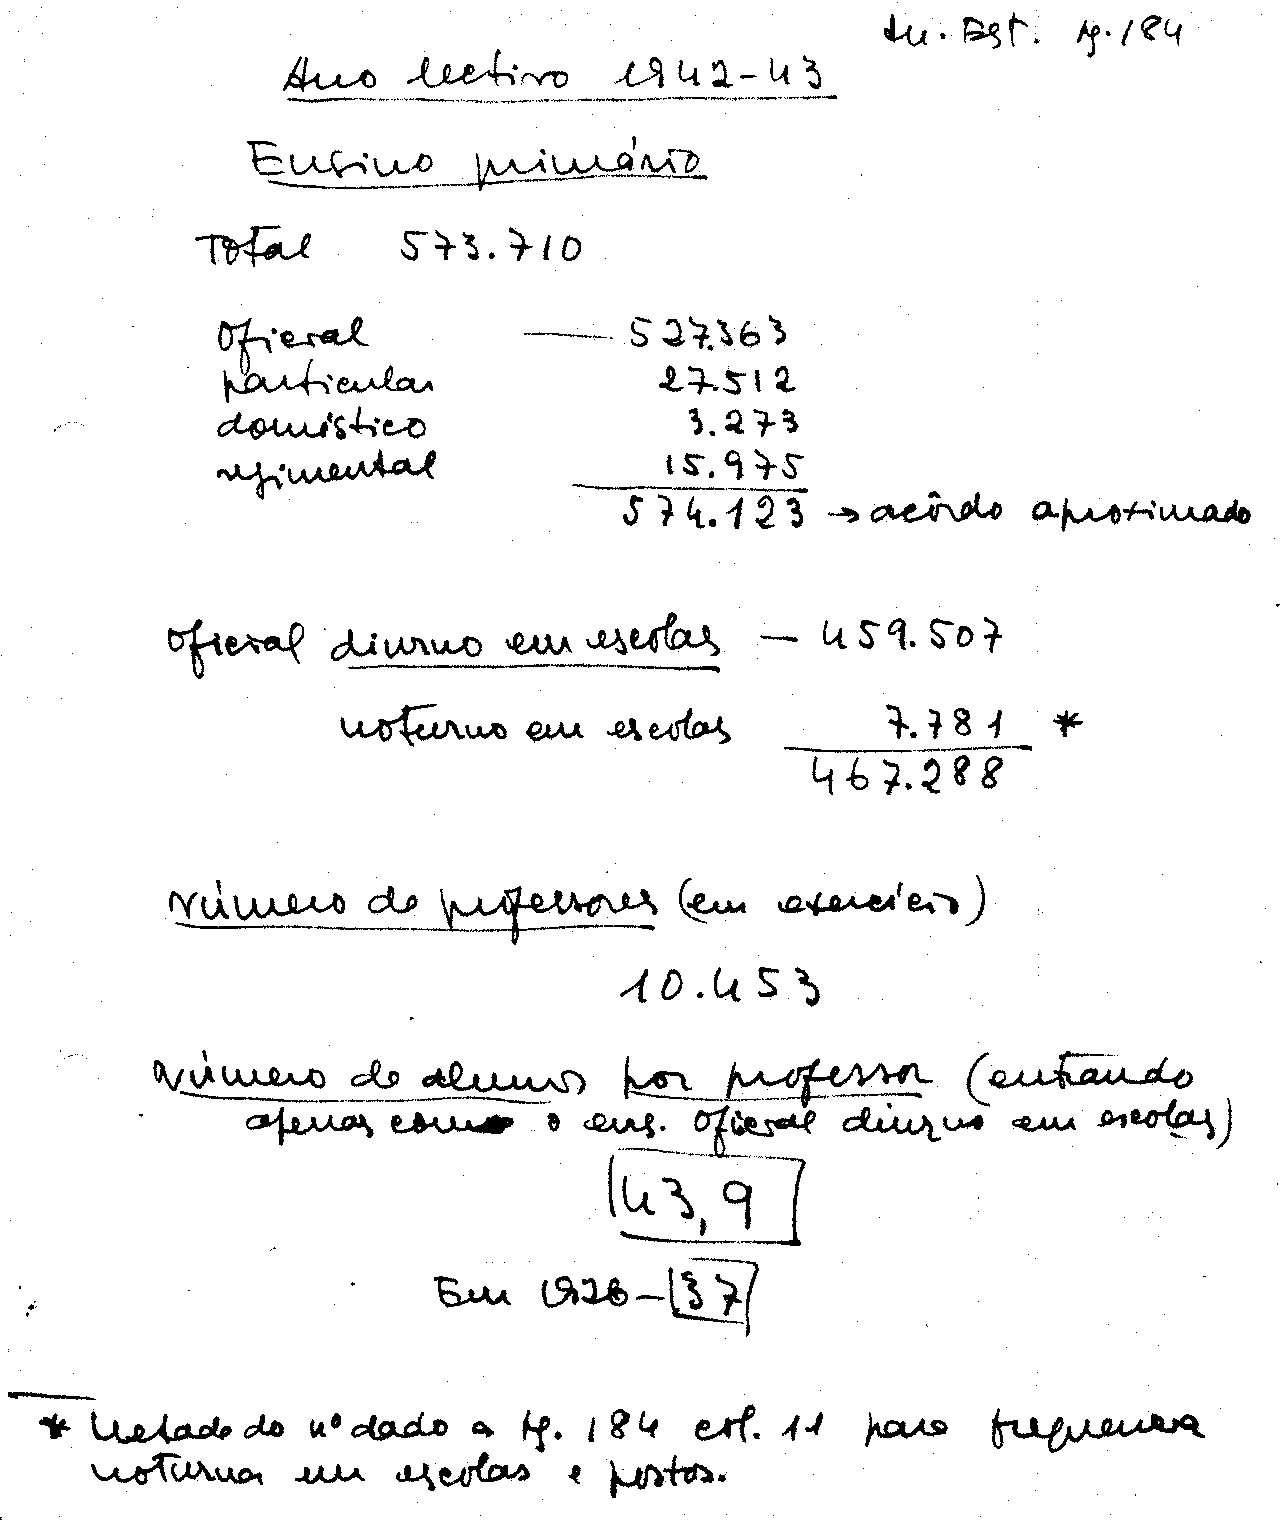 An. Est. pg. 184
Ano lectivo 1942-43
Ensino primário
Total 573.710
Oficial — 527.363
particular 27.512
doméstico 3.273
regimental 15.975
574.123 → acôrdo aproximado
Oficial diurno em escolas — 459.507
noturno em escolas 7.781 *
467.288
Número de professores (em exercício)
10.453
Número de alunos por professor (entrando
apenas com o ens. oficial diurno em escolas)
43,9
Em 1926 — 37
* Metade do nº dado a pg. 184 col. 11 para frequencia
noturna em escolas e postos.